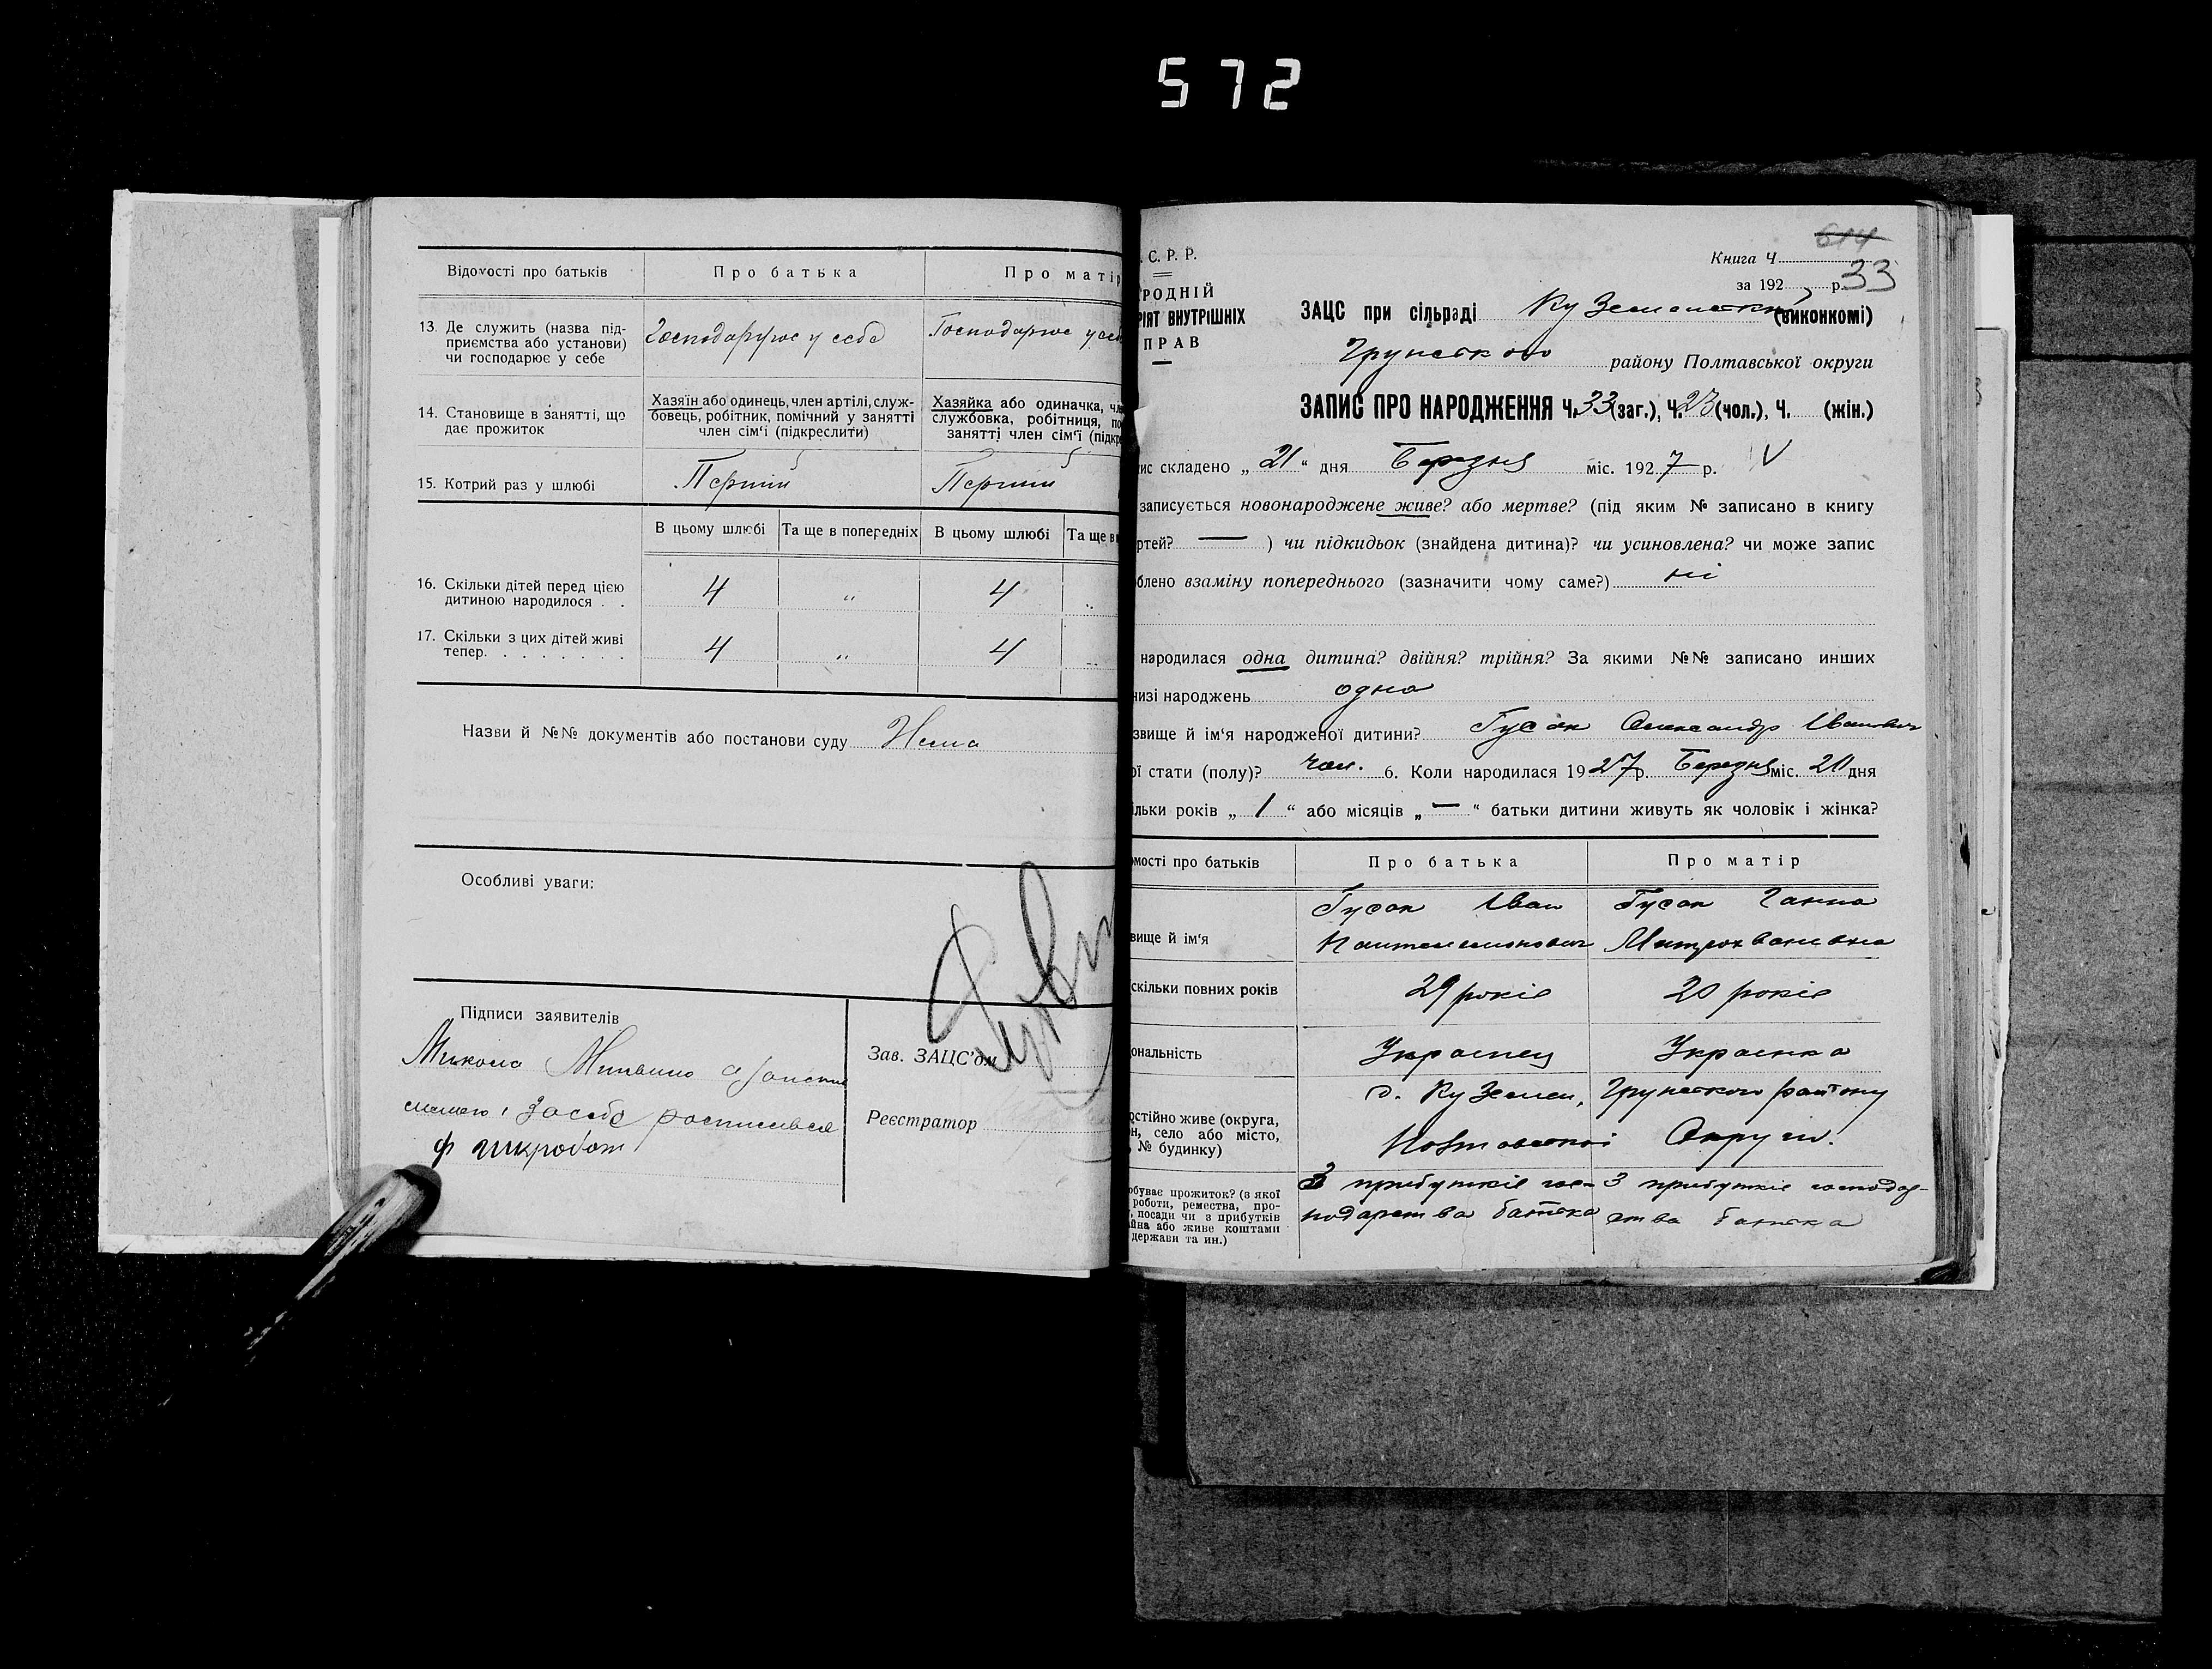 572
Відомості про батьків Про батька Про матір
13. Де служить (назва під-
приємства або установи)
чи господарює у себе
Господарює у себе Господарює у себ
14. Становище в занятті, що
дає прожиток
Хазяїн або одинець, член артілі, служ-
бовець, робітник, помічний у занятті
член сім'ї (підкреслити)
Хазяйка або одиначка, чле
службовка, робітниця, по
занятті член сім'ї (підкре
15. Котрий раз у шлюбі Перший Перший
В цьому шлюбі Та ще в попередніх В цьому шлюбі Та ще в
16. Скільки дітей перед цією
дитиною народилося . . 4 " 4 "
17. Скільки з цих дітей живі
тепер. . . . . . . . 4 " 4 "
Назви й №№ документів або постанови суду Нема
Особливі уваги:
Підписи заявителів
Микола
за себе росписався
Зав. ЗАЦС'ом
Реєстратор
614
. С. Р. Р.
Книга Ч.
за 192 7 р. 33
РОДНІЙ
РІЯТ ВНУТРІШНІХ
ПРАВ
ЗАЦС при сільраді Ку Земенській (виконкомі)
Грунського району Полтавської округи
ЗАПИС ПРО НАРОДЖЕННЯ Ч. 33 (заг.), Ч. 23 (чол.), Ч. (жін.)
ис складено „ 21 " дня Березня міс. 192 7 р. V
записується новонароджене живе? або мертве? (під яким № записано в книгу
ртей? — ) чи підкидьок (знайдена дитина)? чи усиновлена? чи може запис
блено взаміну попереднього (зазначити чому саме?) ні
народилася одна дитина? двійня? трійня? За якими №№ записано инших
низі народжень одна
звище й ім'я народженої дитини? Гусак Олександр Іванович
ої стати (полу)? чол. 6. Коли народилася 19 27 р. Березня міс. 20 дня
ільки років „ 1 " або місяців „ — " батьки дитини живуть як чоловік і жінка?
омості про батьків Про батька Про матір
вище й ім'я
Гусак Іван
Пантелимонович
Гусак Ганна
Митрохванівна
скільки повних років 29 років 20 років
ональність Українец Українка
остійно живе (округа,
н, село або місто,
, № будинку)
с. Ку Земен, Грунського району
Полтавської Округи.
обуває прожиток? (з якої
роботи, ремества, про-
, посади чи з прибутків
йна або живе коштами
держави та ин.)
З прибутків гос-
подарства батька
З прибутків господар-
ства батька